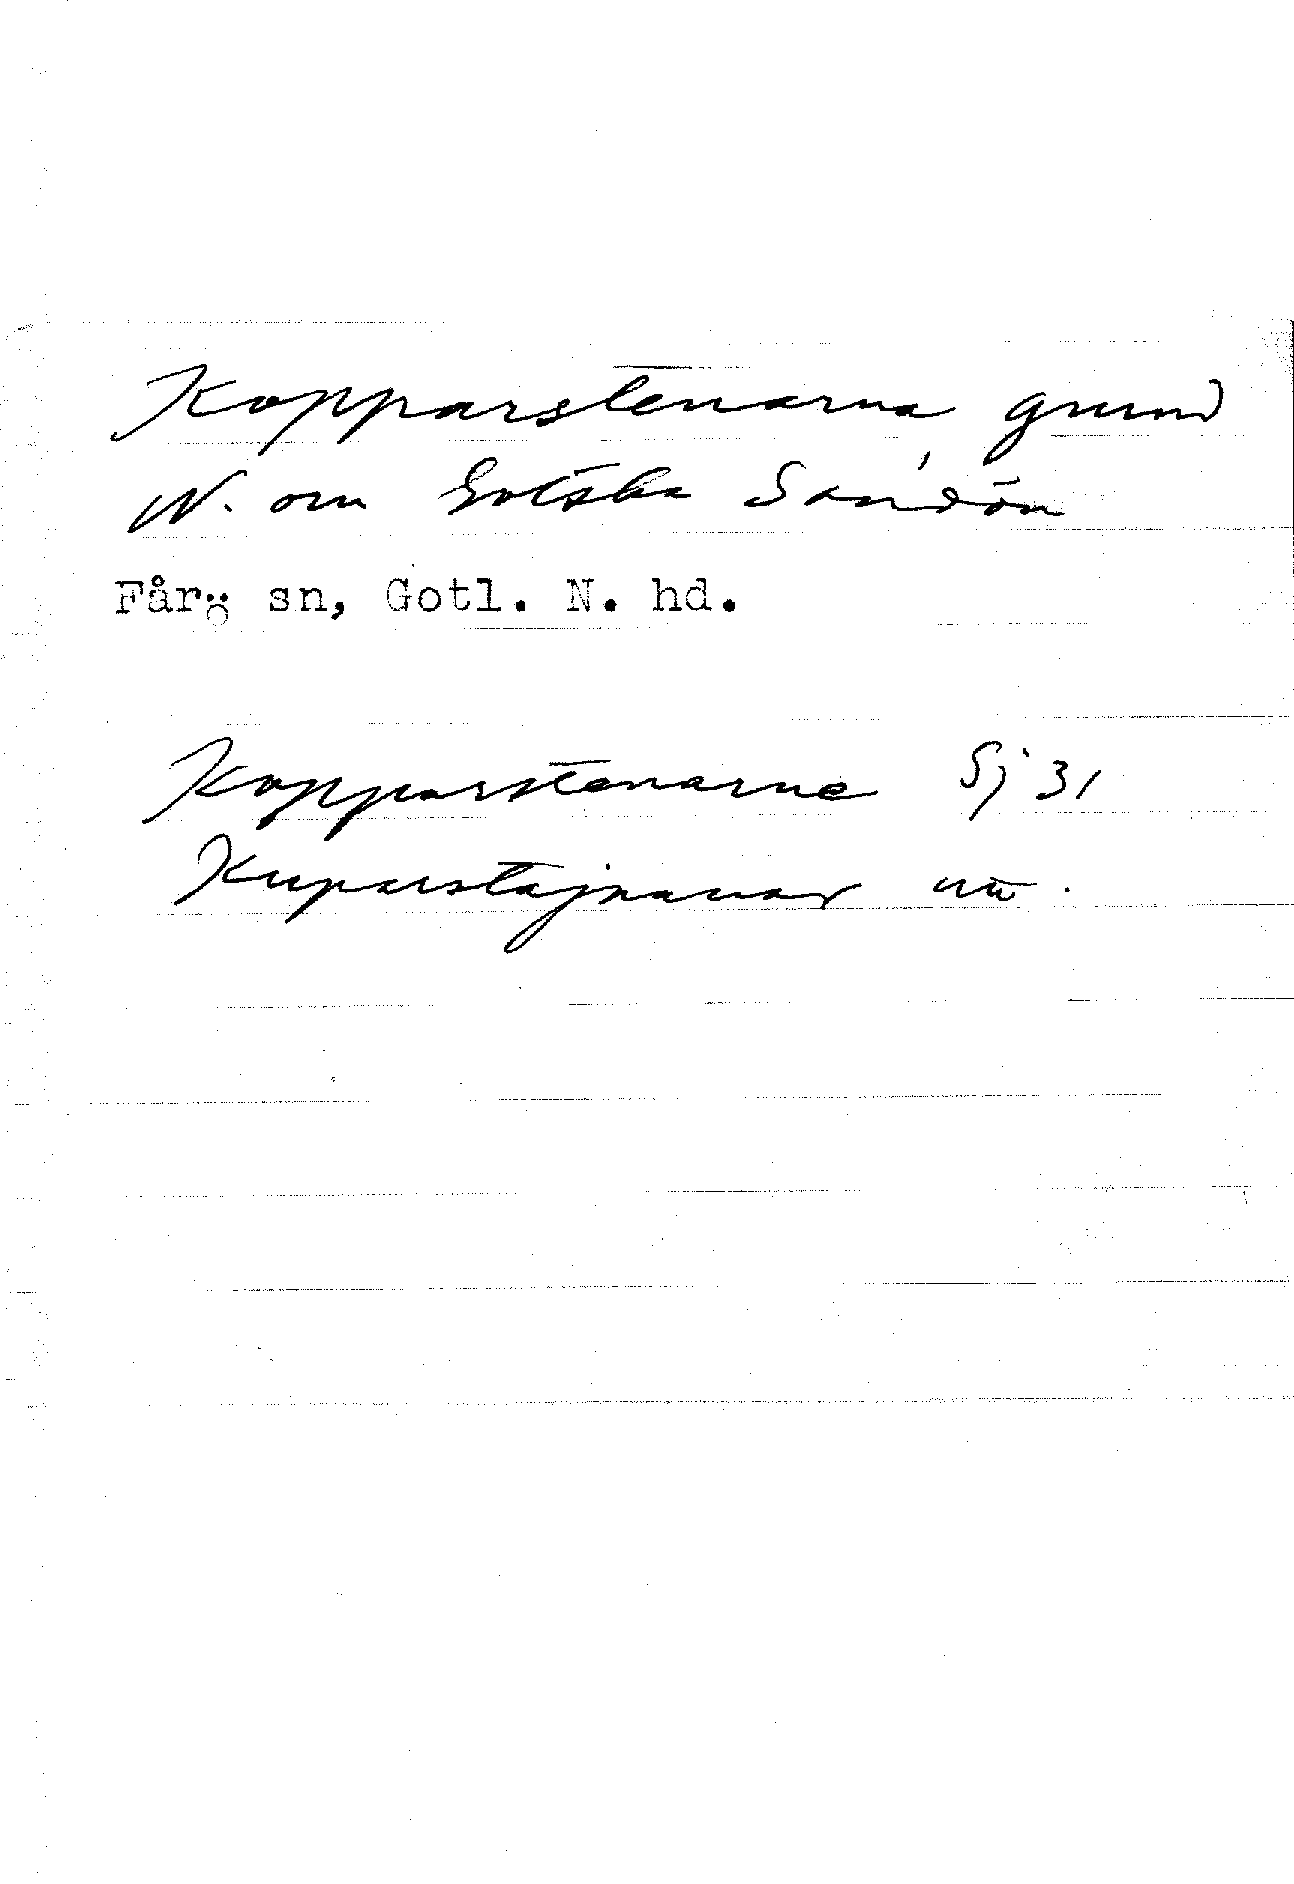 Kopparstenarna, grund
N. om Gotska Sandön
Fårö sn, Gotl. N. hd.
Kopparstenarne Sj 31
Kuparstajnanar